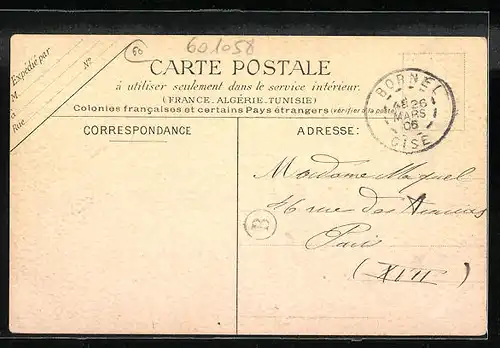 60
601058
Expédié par
M.
à
Rue
No
CARTE POSTALE
à utiliser seulement dans le service intérieur.
(FRANCE, ALGÉRIE, TUNISIE)
Colonies françaises et certains Pays étrangers (vérifier à la poste)
CORRESPONDANCE
ADRESSE:
BORNEL
26
MARS
05
OISE
Madame Maquel
46 rue des
Paris
(XVII
B